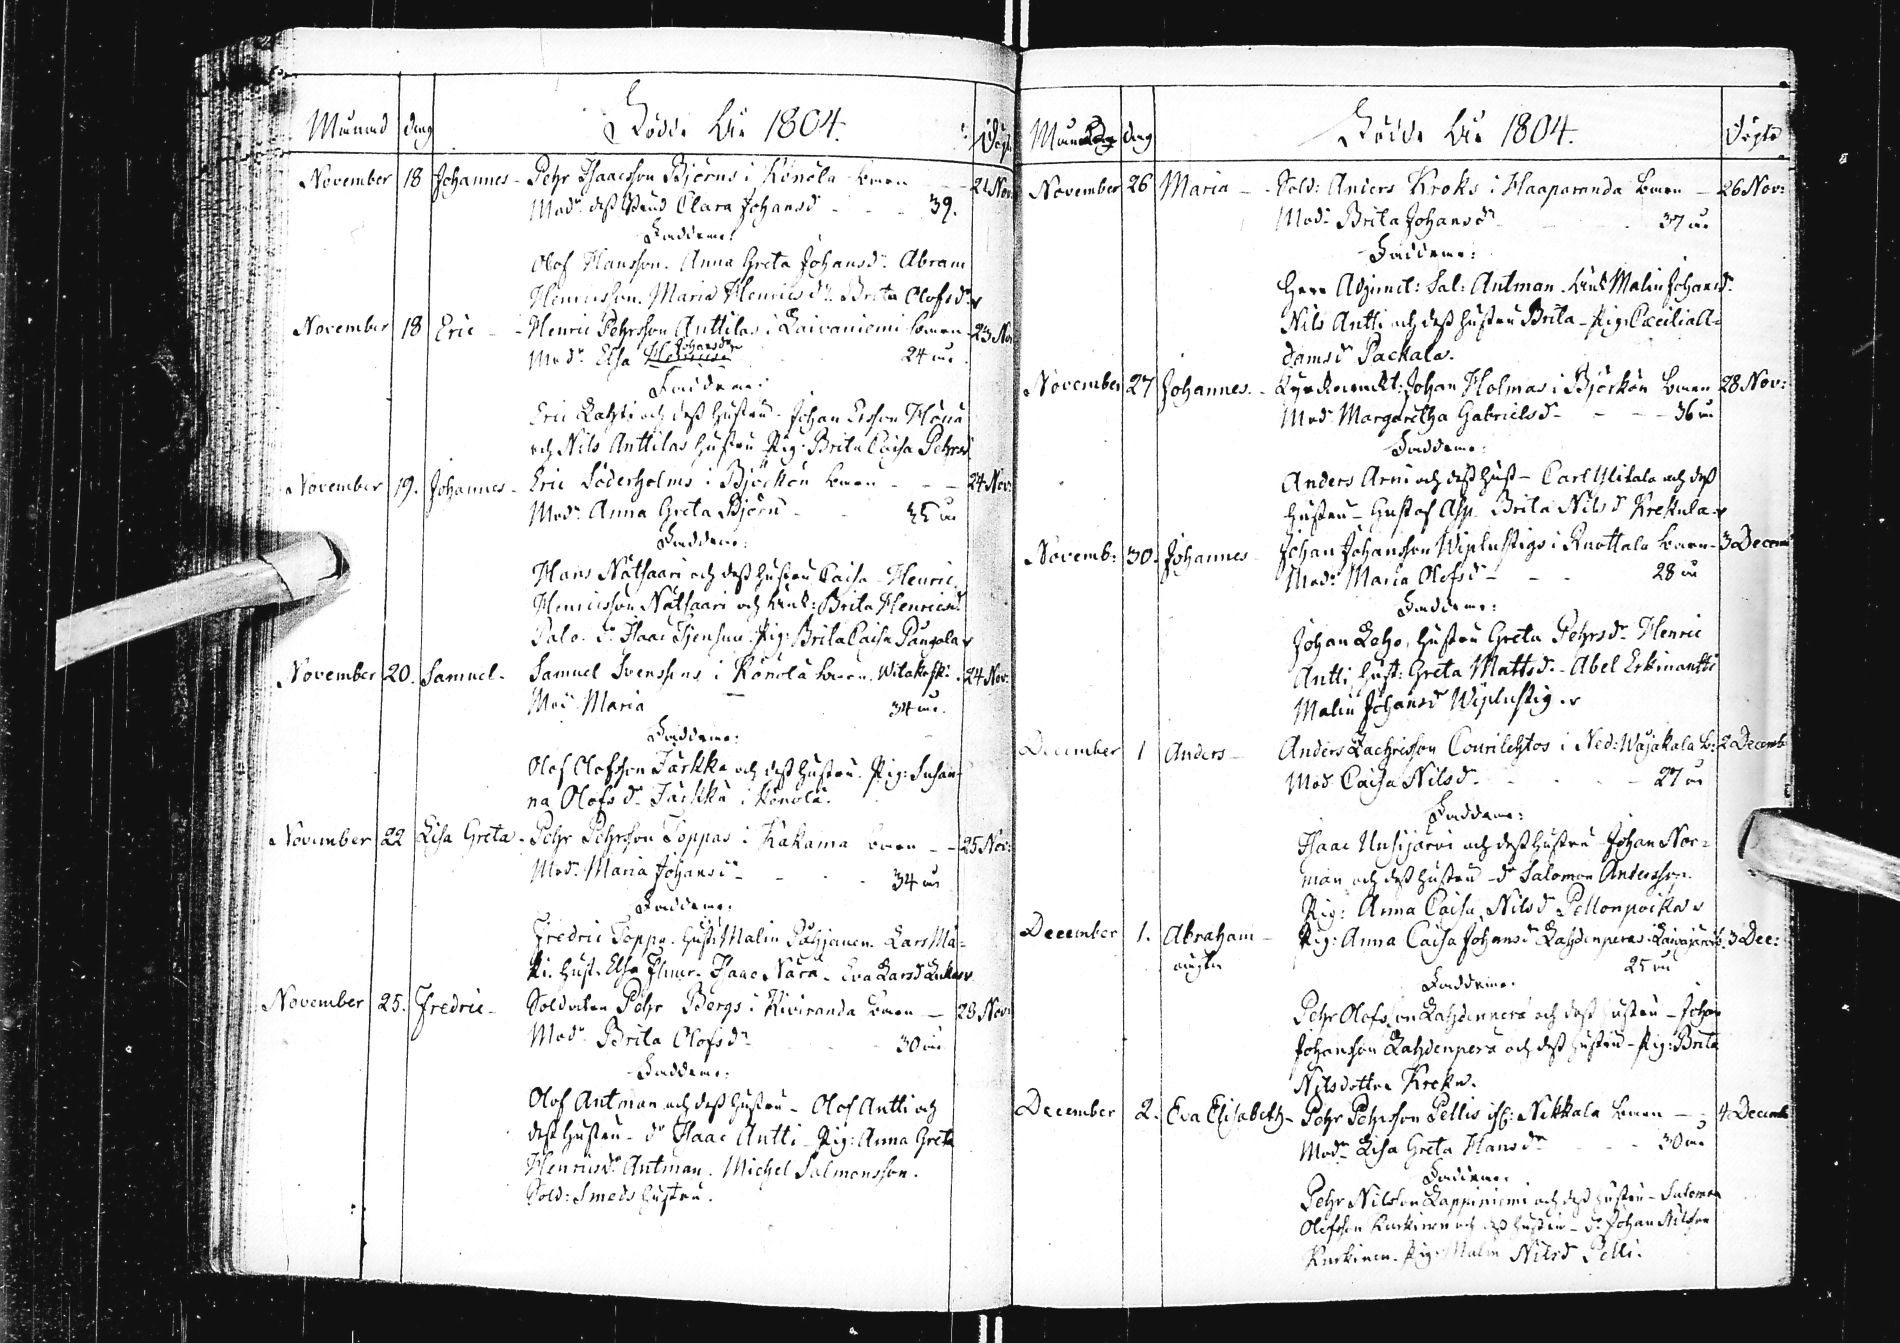 Månad dag Födde År 1804. Döpt
November 18 Johannes - Pehr Isaacsson Björns i Könölä barn - - 21 Nov:
Modr. dess Clara Johansd - - - 39.
Faddrene:
Olof Hansson. Anna Greta Johansdr. Abram
Henricsson. Maria Henricsdr. Brita Olofsdr.
November 18 Eric - Henric Pehrsson Anttilas i Laivaniemi barn - 23 Nov
Modr. Elsa Johansdr 24 år.
Faddrene:
Eric Lahti och dess hustru - Johan Ersson
och Nils Anttilas hustru Pig: Brita Caisa Pehrsd
November 19. Johannes - Eric Söderholms i Björkön barn - - - 24 Nov:
Modr. Anna Greta Björn - - 35 år
Faddrene:
Hans Nätsaari och dess hustru Caisa - Henric
Henricsson Nätsaari och Enk: Brita Henricsd.
Palo. dr. Isaac Pig: Brita Caisa
November 20. Samuel - Samuel Svenssons i Könölä barn. Witakoski. 24 Nov:
Mod: Maria - 34 år.
Faddrene:
Olof Olofsson Jarkko och dess hustru. Pig: Susan-
na Olofsdr. Jarkko i Könölä.
November 22 Lisa Greta - Pehr Pehrsson Toppas i Kakama barn - - 25 Nov:
Modr. Maria Johansdr - - - 34 år
Faddrene:
Fredric Toppo. Hust: Malin Lars Mä-
ki. Hust. Elsa Isaac Nara - Eva Larsd
November 25. Fredric - Soldaten Pehr Bergs i Kiviranda barn - 28 Nov:
Modr. Brita Olofsdr - - - 30 år
Faddrene:
Olof Antman och dess hustru - Olof Antti och
dess hustru - dr. Isaac Antti - Pig: Anna Greta
Henricsdr. Antman. Michel Salmonsson.
Sold: Smeds hustru.
dag Födde År 1804. Döpte
November 26 Maria - Sold: Anders Kroks i Haaparanda barn - 26 Nov:
Modr. Brita Johansdr - - 37 år
Faddrene:
Herr Adjunct: Sal: Antman. Enk Malin Johansdr.
Nils Antti och dess hustru Brita - Pig: Cæcilia A-
damsdr Packala.
November 27 Johannes - Johan Holmas i Björkön barn 28 Nov:
Modr Margaretha Gabrielsdr - - - 36 år
Faddrene:
Anders Arni och dess hust - Carl Ylitalo och dess
hustru - Gustaf Asp. Brita Nilsd Krekula.
Novemb: 30. Johannes - Johan Johansson i Ruottala barn - 3 Decem
Modr: Maria Olofsdr - - - 28 år
Faddrene:
Johan Leho, hustru Greta Pehrsdr. Henric
Antti hust: Greta Mattsdr. - Abel Erkinantti
Malin Johansd
December 1 Anders - Anders Zachrisson i Ned: Wojakala b: 2 Decemb
Modr Caisa Nilsdr. - - - 27 år
Faddrene:
Isaac Uusijärvi och dess hustru Johan Nor-
man och dess hustru - dr Salomon Andersson.
Pig: Anna Caisa Nilsd Pellonpoika
December 1. Abraham - Pig: Anna Caisa Johansd 3 Dec:
oägta 25 år
Faddrene:
Pehr Olofsson Lahdenperä och dess hustru - Johan
Johansson Lahdenperä och dess hustru - Pig: Brita
Nilsdotter
December 2. Eva Elisabeth - Pehr Pehrsson Pellis Nikkala barn - - 4 Decemb
Modr Lisa Greta Hansdr - - 30 år
Faddrene:
Pehr Nilsson Lappiniemi och dess hustru - Salomon
Olofsson och dess hustru - dr. Johan Nilsson
Pig: Malin Nilsd Pelli.